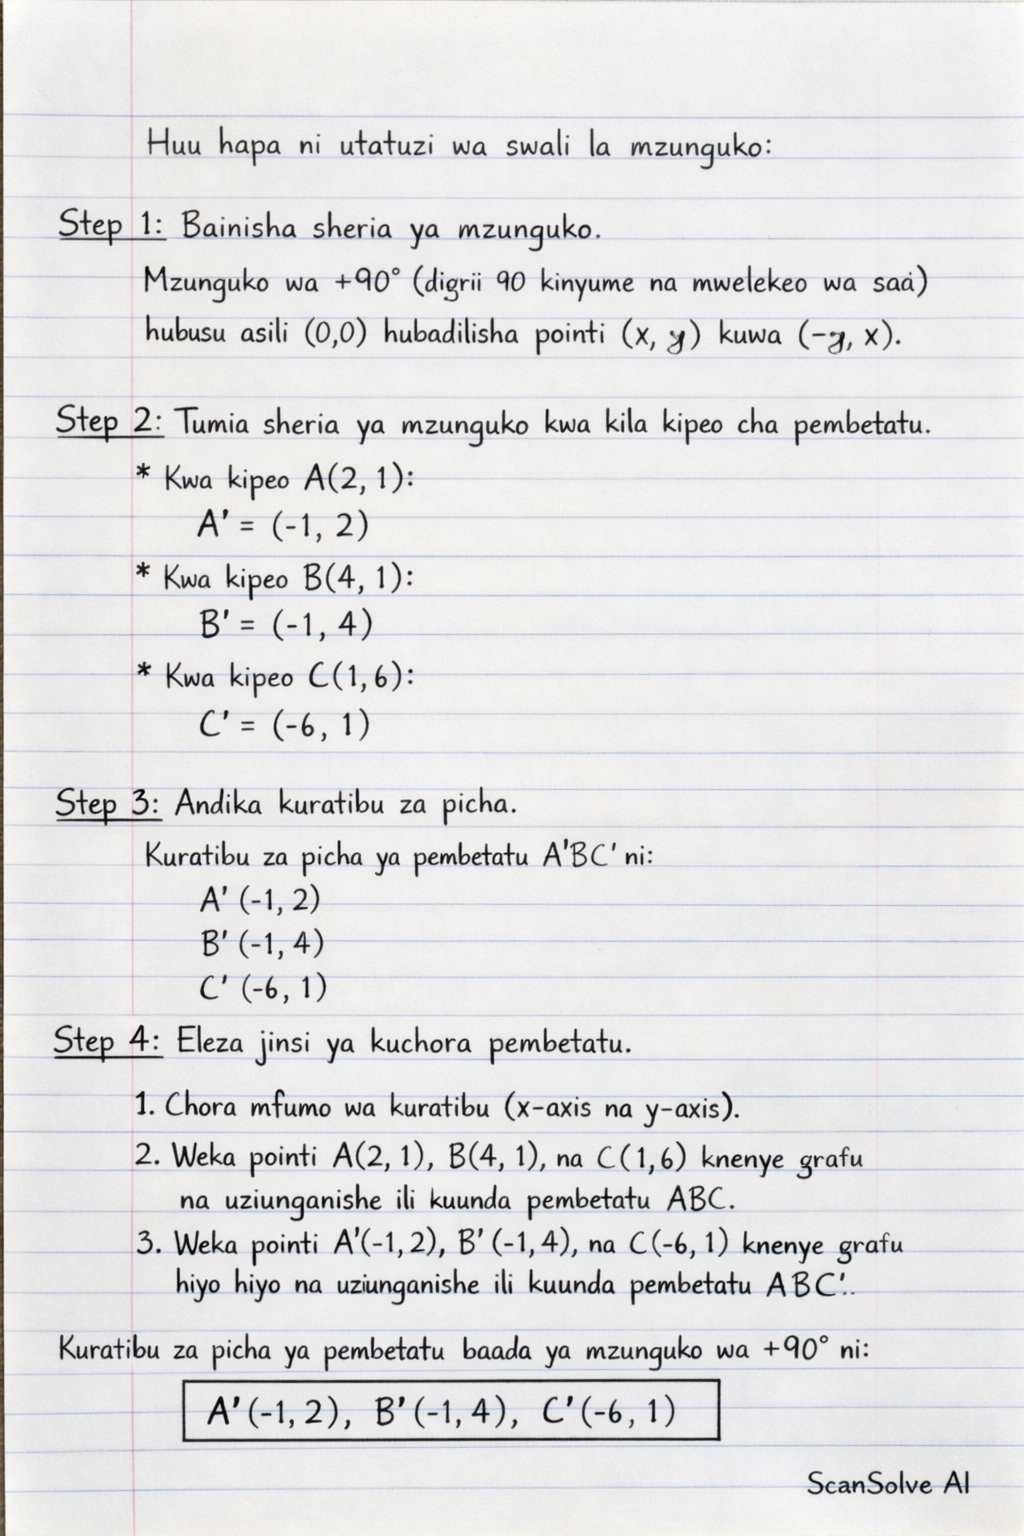 Huu hapa ni utatuzi wa swali la mzunguko:
Step 1: Bainisha sheria ya mzunguko.
Mzunguko wa +90° (digrii 90 kinyume na mwelekeo wa saa)
hubusu asili (0,0) hubadilisha pointi (x, y) kuwa (-y, x).
Step 2: Tumia sheria ya mzunguko kwa kila kipeo cha pembetatu.
* Kwa kipeo A(2, 1):
A' = (-1, 2)
* Kwa kipeo B(4, 1):
B' = (-1, 4)
* Kwa kipeo C(1,6):
C' = (-6, 1)
Step 3: Andika kuratibu za picha.
Kuratibu za picha ya pembetatu A'BC' ni:
A' (-1, 2)
B' (-1, 4)
C' (-6, 1)
Step 4: Eleza jinsi ya kuchora pembetatu.
1. Chora mfumo wa kuratibu (x-axis na y-axis).
2. Weka pointi A(2, 1), B(4, 1), na C(1,6) knenye grafu
na uziunganishe ili kuunda pembetatu ABC.
3. Weka pointi A'(-1, 2), B' (-1, 4), na C(-6, 1) knenye grafu
hiyo hiyo na uziunganishe ili kuunda pembetatu ABC'..
Kuratibu za picha ya pembetatu baada ya mzunguko wa +90° ni:
A'(-1, 2), B'(-1, 4), C'(-6, 1)
ScanSolve AI